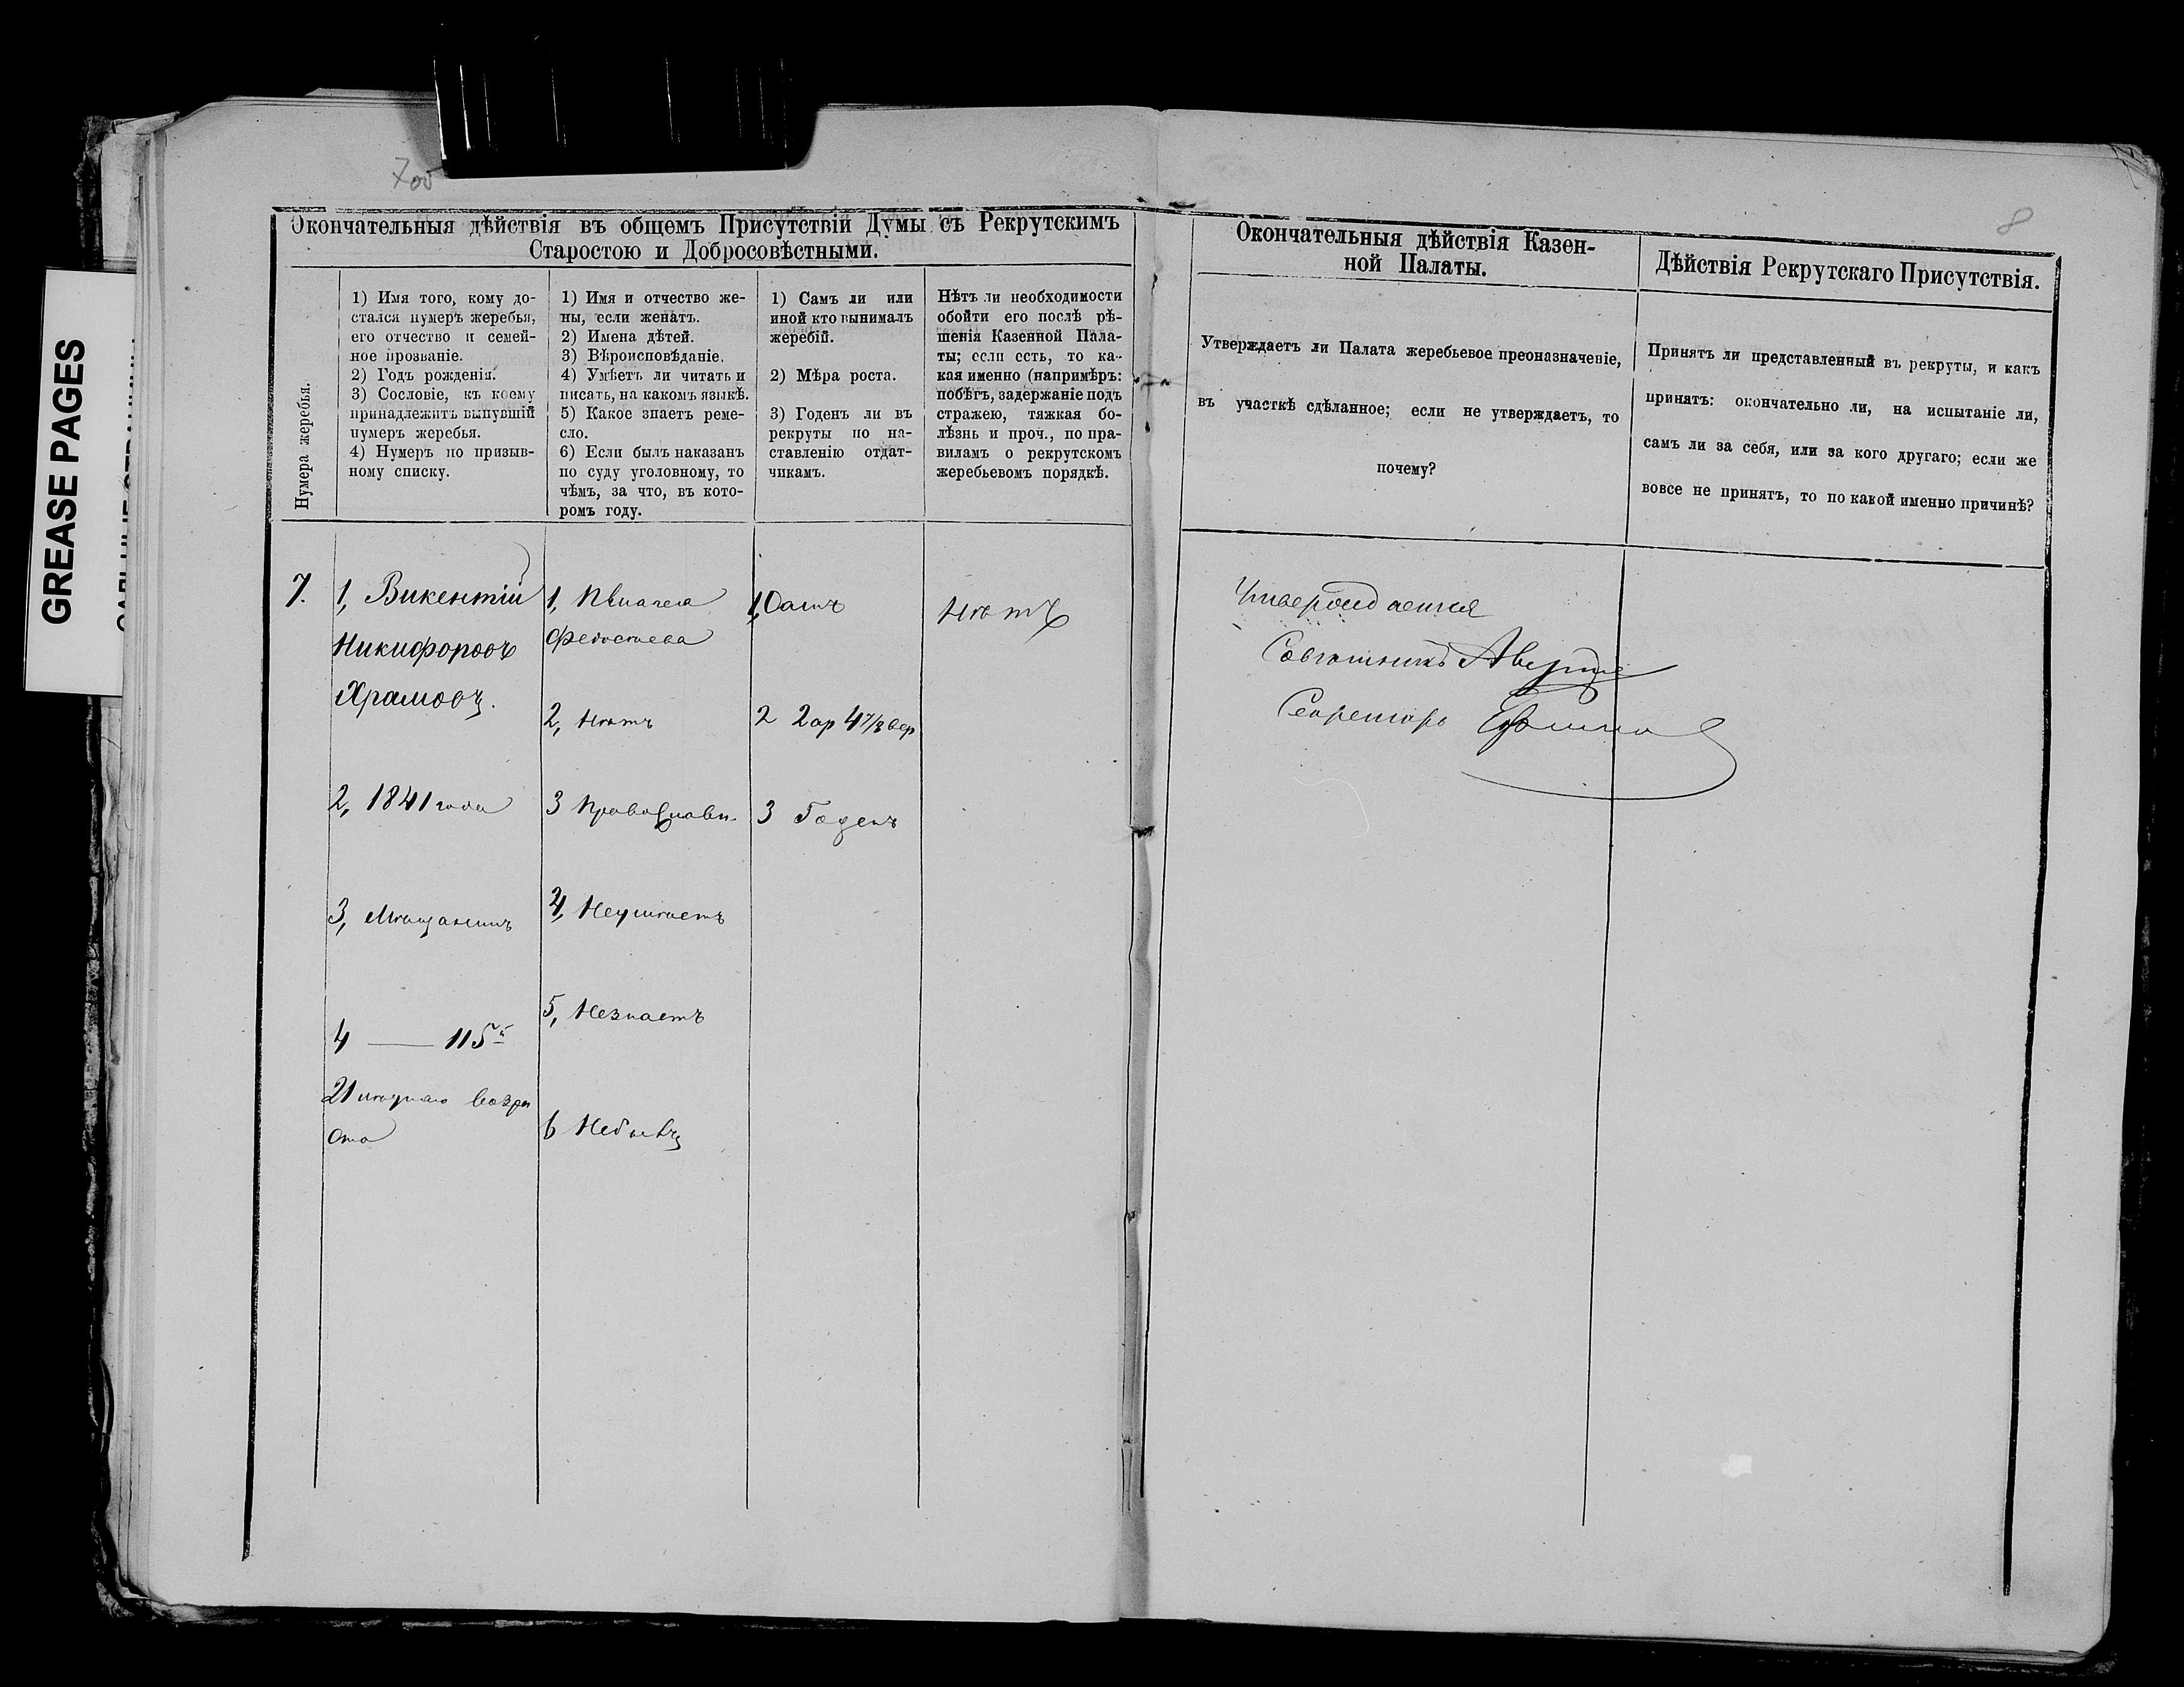 GREASE PAGES
700
8
Окончательныя дѣйствія въ общемъ Присутствіи Думы съ Рекрутскимъ
Старостою и Добросовѣстными.
Нумера жеребья.
1) Имя того, кому до-
стался нумеръ жеребья,
его отчество и семей-
ное прозваніе.
2) Годъ рожденія.
3) Сословіе, къ коему
принадлежитъ вынувшій
нумеръ жеребья.
4) Нумеръ по призыв-
ному списку.
1) Имя и отчество же-
ны, если женатъ.
2) Имена дѣтей.
3) Вѣроисповѣданіе.
4) Умѣетъ ли читать и
писать, на какомъ языкѣ.
5) Какое знаетъ реме-
сло.
6) Если былъ наказанъ
по суду уголовному, то
чѣмъ, за что, въ кото-
ромъ году.
1) Самъ ли или
иной кто вынималъ
жеребій.
2) Мѣра роста.
3) Годенъ ли въ
рекруты по на-
ставленію отдат-
чикамъ.
Нѣтъ ли необходимости
обойти его послѣ рѣ-
шенія Казенной Пала-
ты; если есть, то ка-
кая именно (напримѣръ:
побѣгъ, задержаніе подъ
стражею, тяжкая бо-
лѣзнь и проч., по пра-
виламъ о рекрутскомъ
жеребьевомъ порядкѣ.
Окончательныя дѣйствія Казен-
ной Палаты.
Утверждаетъ ли Палата жеребьевое преоназначеніе,
въ участкѣ сдѣланное; если не утверждаетъ, то
почему?
Дѣйствія Рекрутскаго Присутствія.
Принятъ ли представленный въ рекруты, и какъ
принятъ: окончательно ли, на испытаніе ли,
самъ ли за себя, или за кого другаго; если же
вовсе не принятъ, то по какой именно причинѣ?
7.
1, Викентій
Никифоровъ
Храмовъ.
2, 1841 года
3, Мѣщанинъ
4 — 115й
21 лѣтняго возра
ста
1, Пелагея
Федосеева
2, Нѣтъ
3 Православн.
4, Неумѣетъ
5, Незнаетъ
6 Небылъ
1, Самъ
2 2 ар 4 7/8 вер
3 Годенъ
Нѣтъ
Утверждается
Совѣтникъ
Секретарь